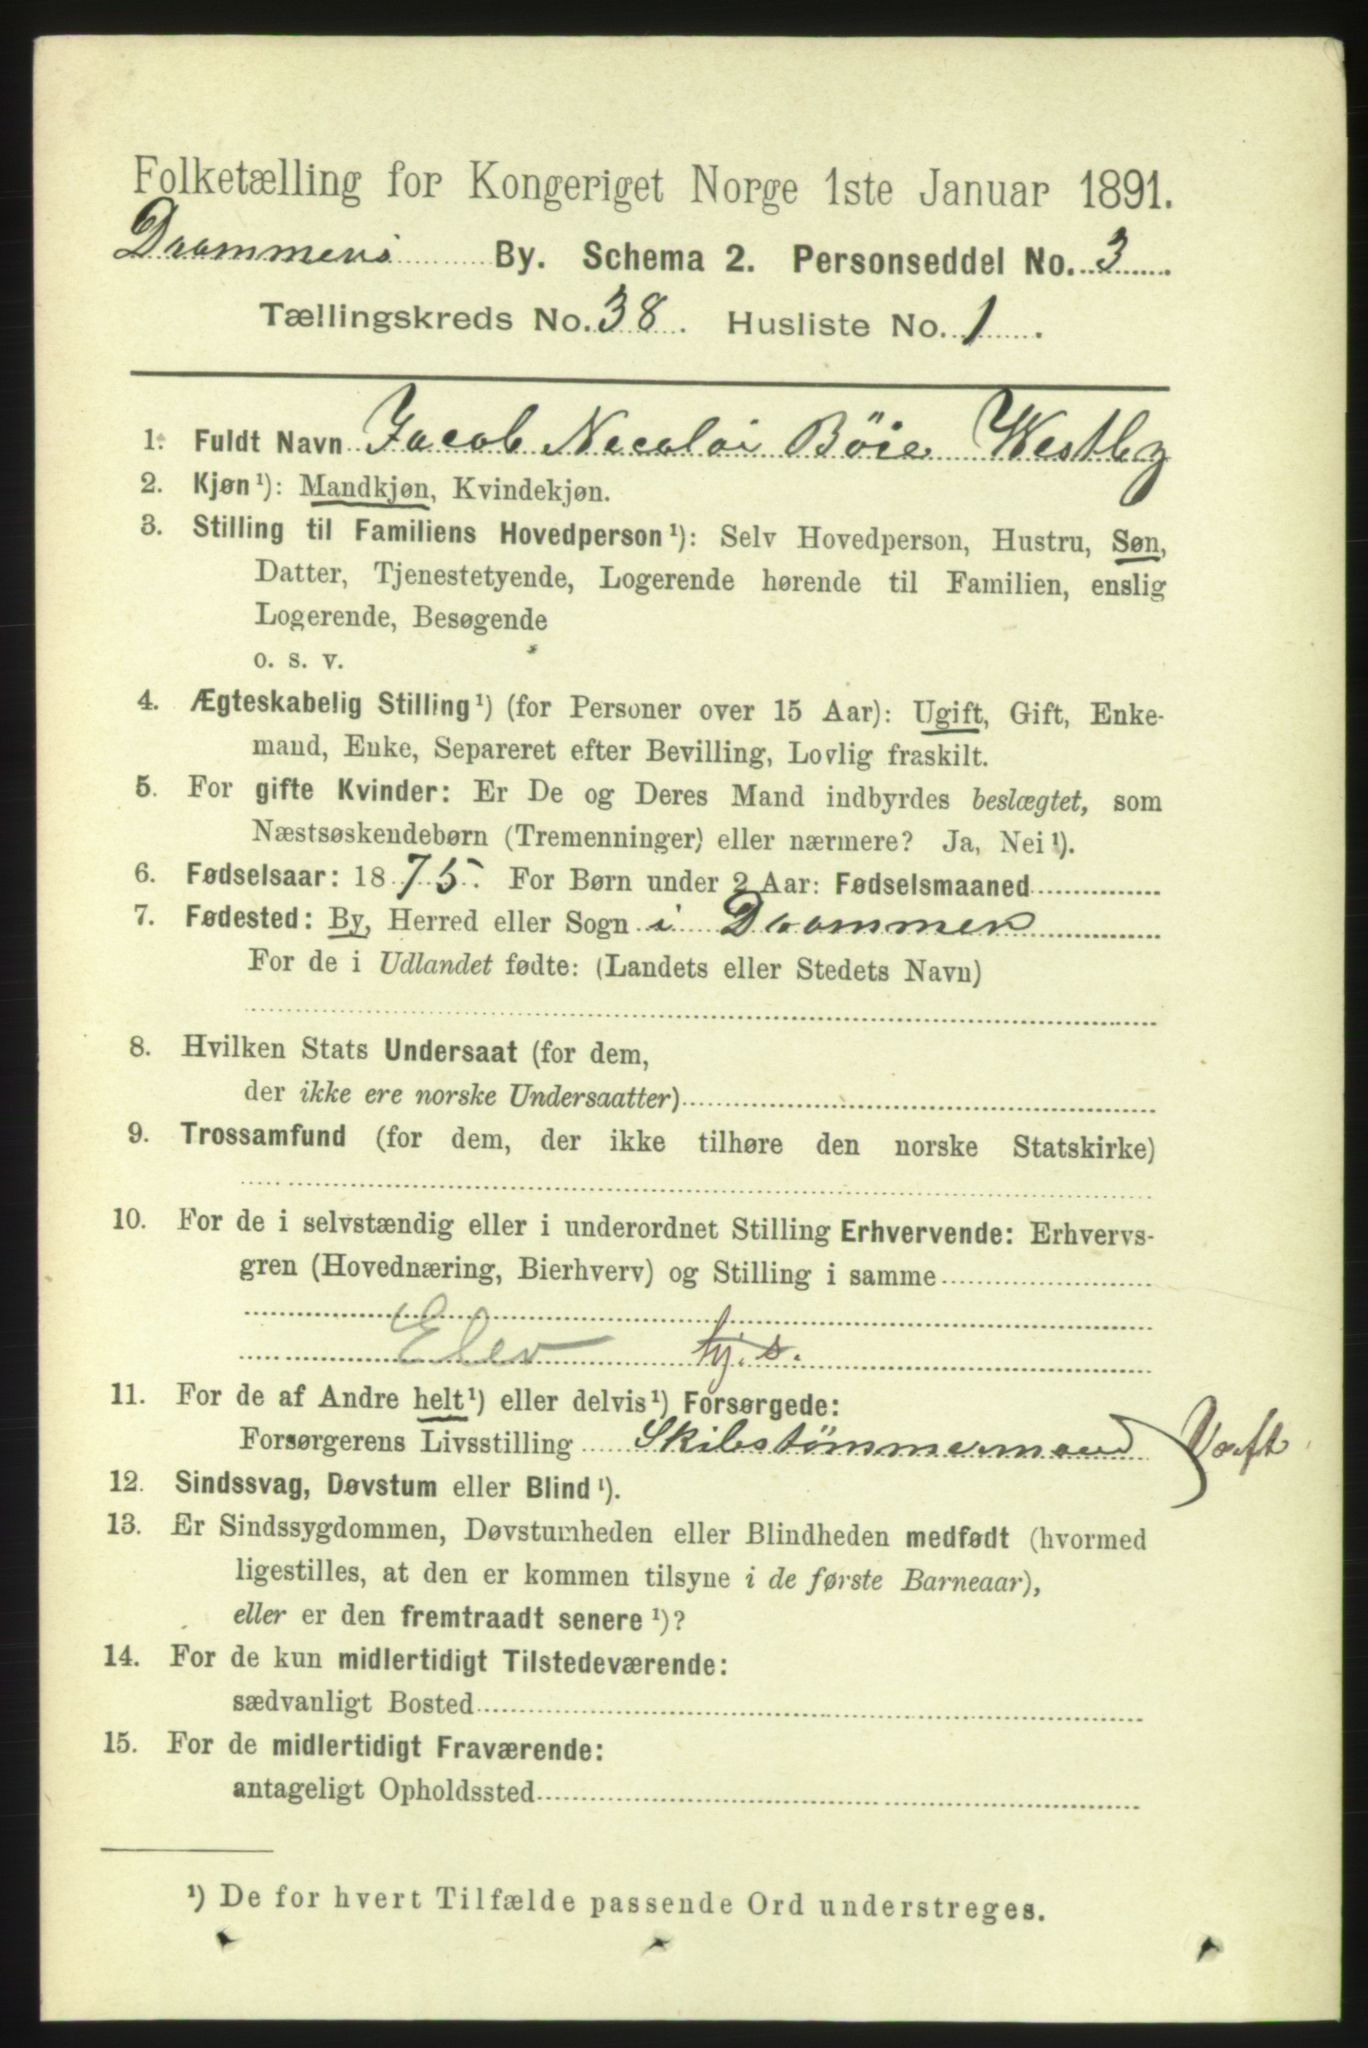 Folketælling for Kongeriget Norge 1ste Januar 1891.
Drammens By. Schema 2. Personseddel No. 3
Tællingskreds No. 38. Husliste No. 1.
1. Fuldt Navn Jacob Necolai Böie Westby
2. Kjøn¹): Mandkjøn, Kvindekjøn.
3. Stilling til Familiens Hovedperson¹): Selv Hovedperson, Hustru, Søn,
Datter, Tjenestetyende, Logerende hørende til Familien, enslig
Logerende, Besøgende
o. s. v.
4. Ægteskabelig Stilling¹) (for Personer over 15 Aar): Ugift, Gift, Enke-
mand, Enke, Separeret efter Bevilling, Lovlig fraskilt.
5. For gifte Kvinder: Er De og Deres Mand indbyrdes beslægtet, som
Næstsøskendebørn (Tremenninger) eller nærmere? Ja, Nei¹).
6. Fødselsaar: 1875. For Børn under 2 Aar: Fødselsmaaned
7. Fødested: By, Herred eller Sogn i Drammen
For de i Udlandet fødte: (Landets eller Stedets Navn)
8. Hvilken Stats Undersaat (for dem,
der ikke ere norske Undersaatter)
9. Trossamfund (for dem, der ikke tilhøre den norske Statskirke)
10. For de i selvstændig eller i underordnet Stilling Erhvervende: Erhvervs-
gren (Hovednæring, Bierhverv) og Stilling i samme
Elev tj. s.
11. For de af Andre helt¹) eller delvis¹) Forsørgede:
Forsørgerens Livsstilling Skibstömmermand Værft
12. Sindssvag, Døvstum eller Blind¹).
13. Er Sindssygdommen, Døvstumheden eller Blindheden medfødt (hvormed
ligestilles, at den er kommen tilsyne i de første Barneaar),
eller er den fremtraadt senere¹)?
14. For de kun midlertidigt Tilstedeværende:
sædvanligt Bosted
15. For de midlertidigt Fraværende:
antageligt Opholdssted
¹) De for hvert Tilfælde passende Ord understreges.